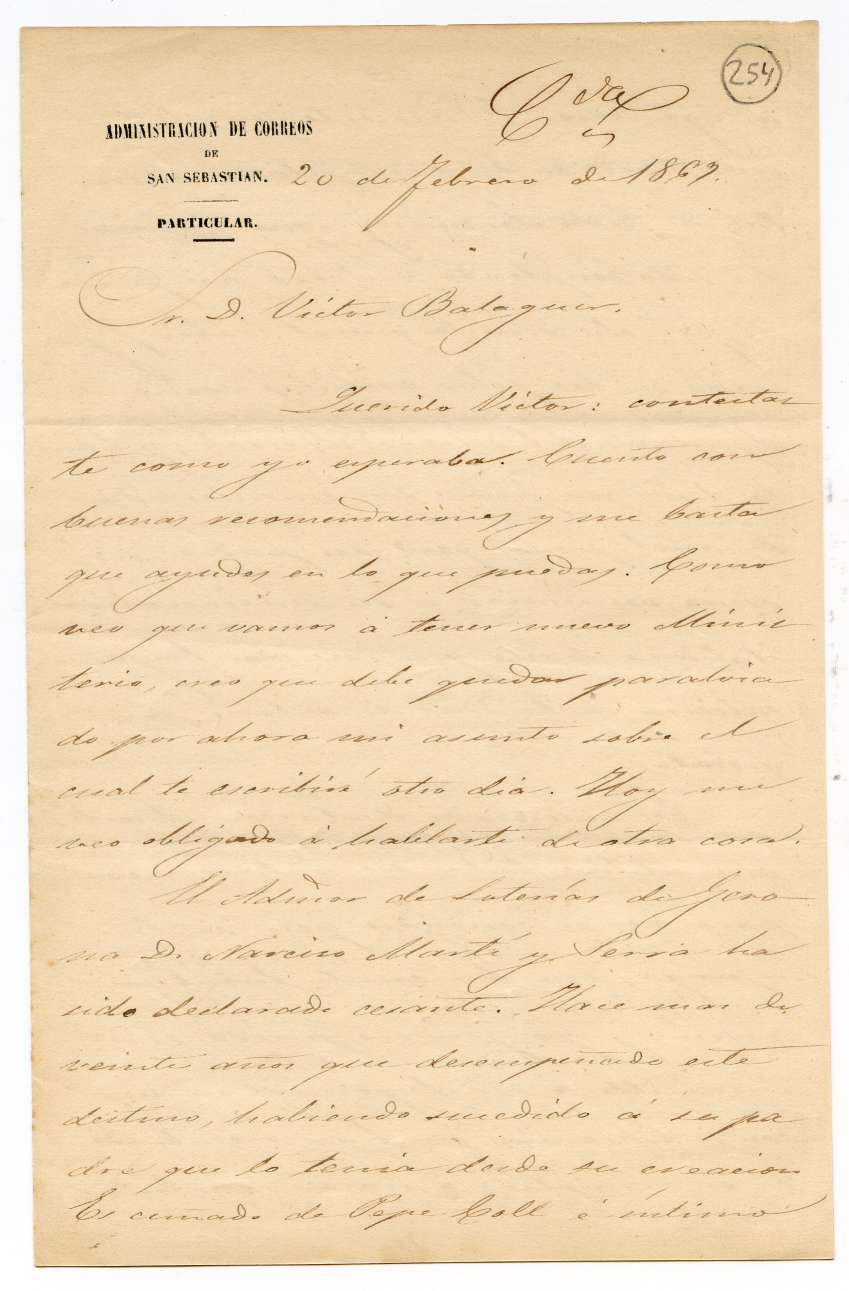 254
Cda
ADMINISTRACION DE CORREOS
DE
SAN SEBASTIAN.
20 de Febrero de 1869.
PARTICULAR.
Sr. D. Víctor Balaguer.
Querido Víctor: contestas
te como yo esperaba. Cuento con
buenas recomendaciones y me basta
que ayudes en lo que puedas. Como
veo que vamos á tener nuevo Minis
terio, creo que debe quedar paraliza
do por ahora mi asunto sobre el
cual te escribiré otro dia. Hoy me
veo obligado á hablarte de otra cosa.
El Admor de Loterías de Gero
na D. Narciso Martí y Serra ha
sido declarado cesante. Hace mas de
veinte años que desempeñado este
destino, habiendo sucedido á su pa
dre que lo tenia desde su creacion
Es cuñado de Pepe Coll é íntimo